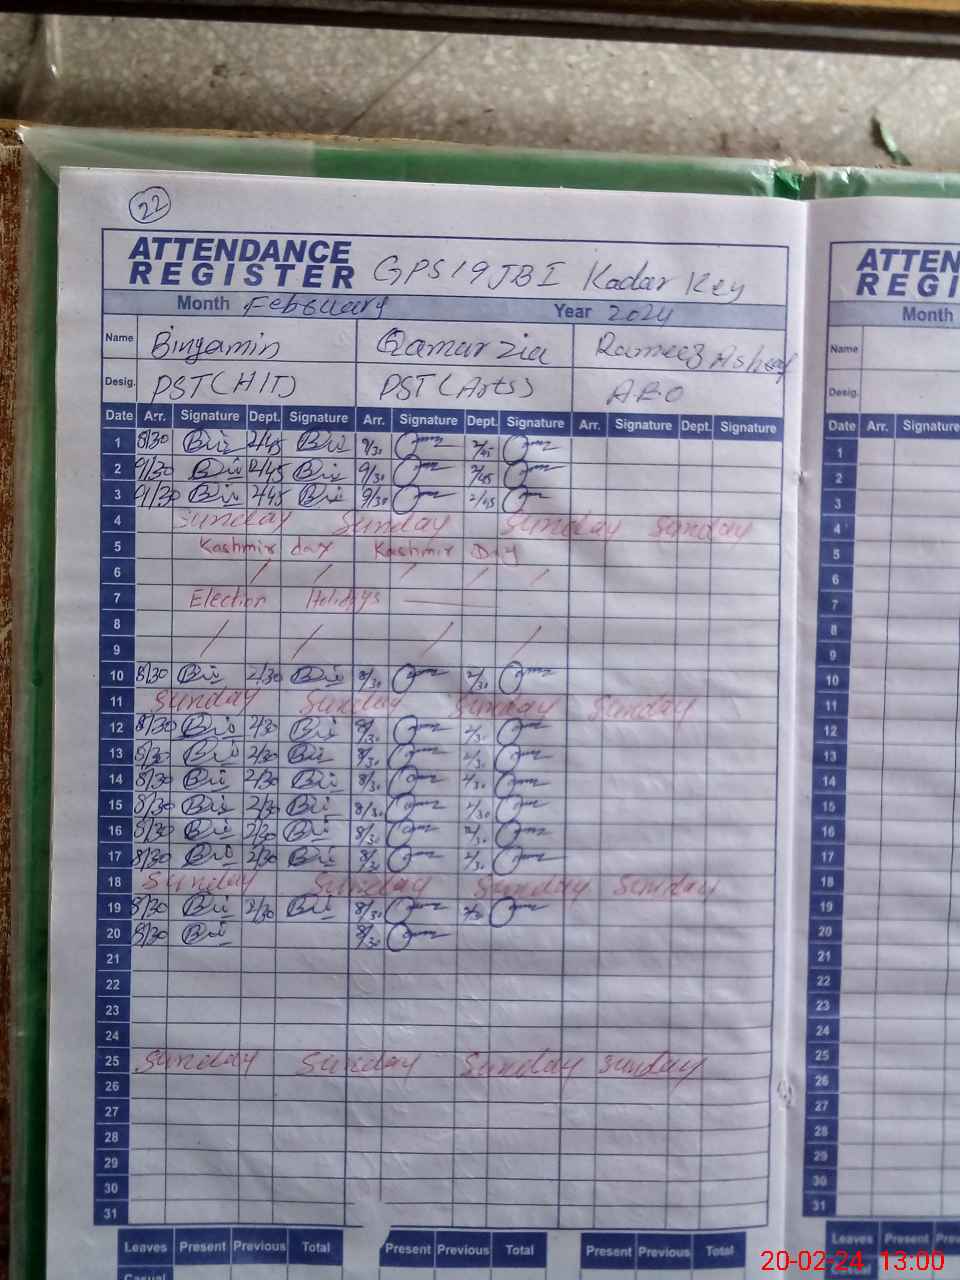 22
ATTENDANCE
REGISTER GPS 19 JBI Kadar Key
Month February Year 2024
Name Binyamin Qamar zia Rameez Ashraf
Desig. PST(HIT) PST(Arts)
Date Arr. Signature Dept. Signature Arr. Signature Dept. Signature Arr. Signature Dept. Signature
1 8/30 2/45 9/30 2/45
2 9/30 2/45 9/30 2/45
3 9/30 2/45 9/30 2/45
4 Sunday Sunday Sunday Sunday
5 Kashmir day Kashmir Day
6 / / / / /
7 Election Holidays
8
9 / / / /
10 8/30 2/30 8/30 2/30
11 Sunday Sunday Sunday Sunday
12 8/30 2/30 8/30 2/30
13 8/30 2/30 8/30 2/30
14 8/30 2/30 8/30 2/30
15 8/30 2/30 8/30 2/30
16 8/30 2/30 8/30 2/30
17 8/30 2/30 8/30 2/30
18 Sunday Sunday Sunday Sunday
19 8/30 2/30 8/30 2/30
20 8/30 8/30
21
22
23
24
25 Sunday Sunday Sunday Sunday
26
27
28
29
30
31
Leaves Present Previous Total Present Previous Total Present Previous Total
Casual
ATTEN
REGI
Month
Name
Desig.
Date Arr. Signature
1
2
3
4
5
6
7
8
9
10
11
12
13
14
15
16
17
18
19
20
21
22
23
24
25
26
27
28
29
30
31
Leaves Present Pre
20-02-24 13:00